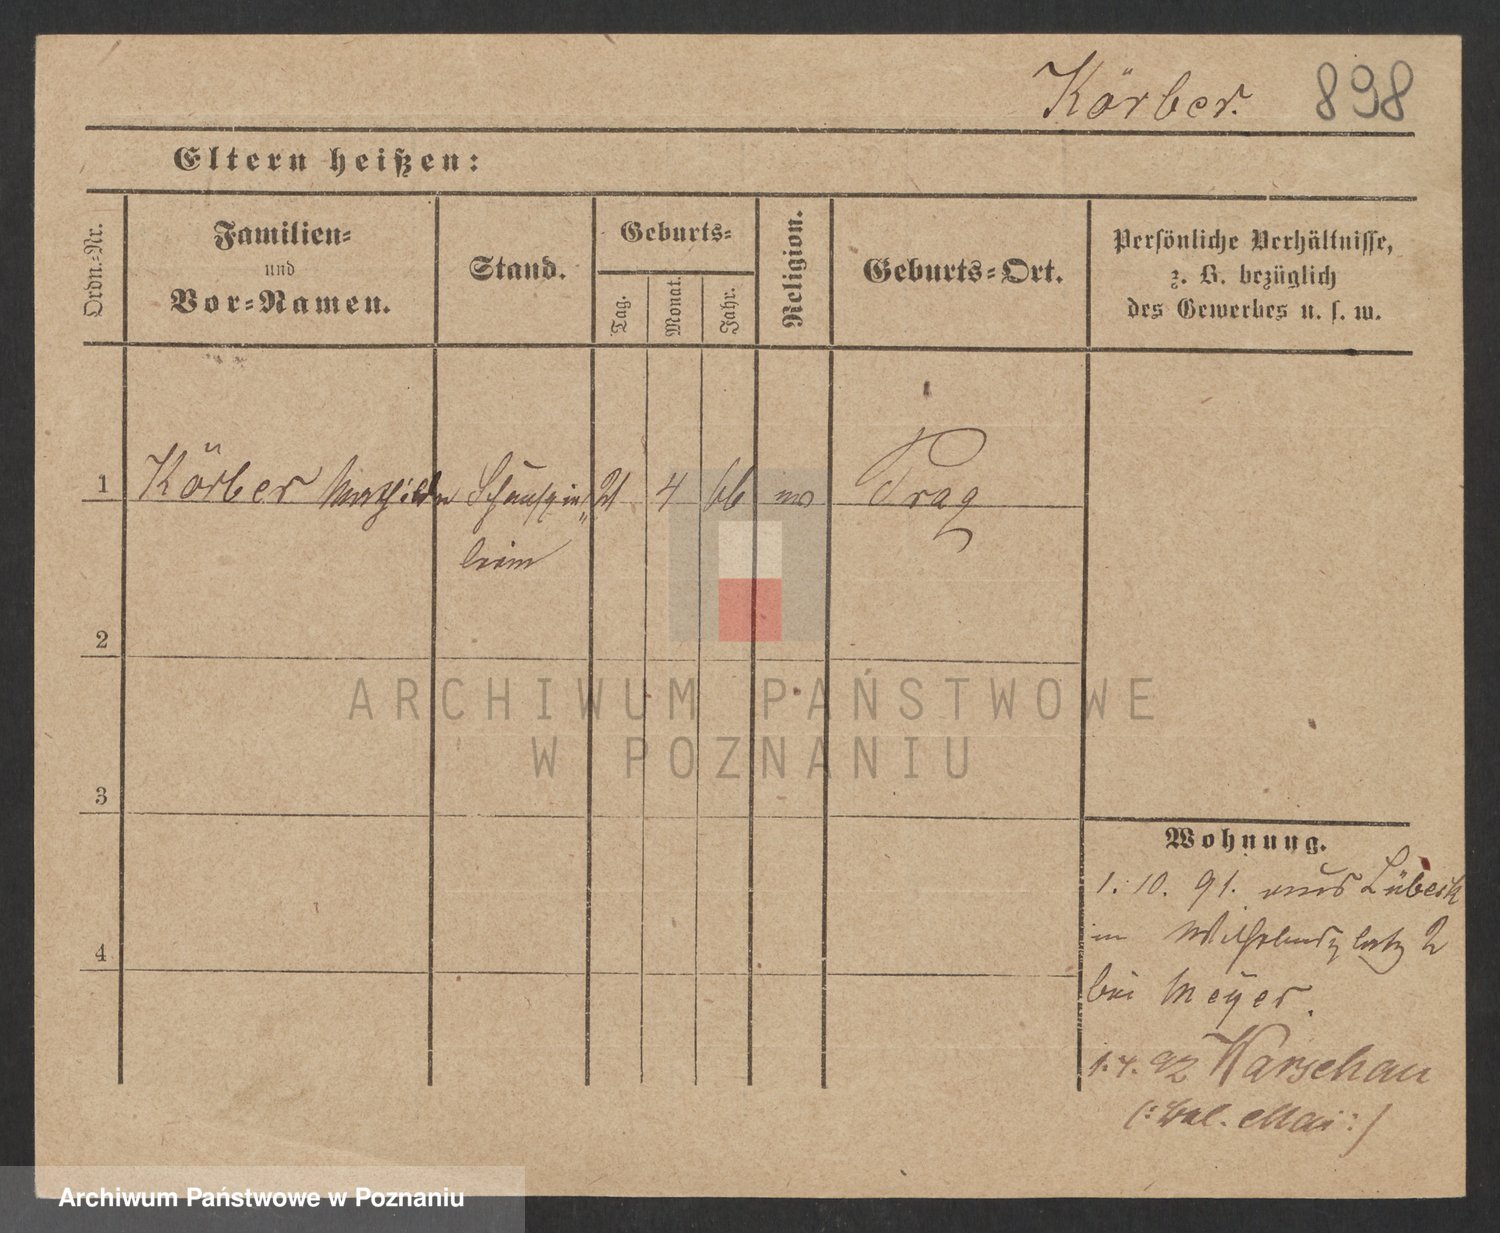 Körber. 898
Eltern heißen:
Ordn.-Nr.
Familien-
und
Vor-Namen.
Stand.
Geburts-
Tag.
Monat.
Jahr.
Religion.
Geburts-Ort.
Persönliche Verhältnisse,
z. B. bezüglich
des Gewerbes u. s. w.
1 Körber Mathilde Schauspie- 21 4 66 Prag
lerin
2
3
4
Wohnung.
1. 10. 91. aus Lübeck
in Wilhelmsplatz 2
bei Meyer.
1. 4. 92 Warschau
ARCHIWUM PAŃSTWOWE
W POZNANIU
Archiwum Państwowe w Poznaniu